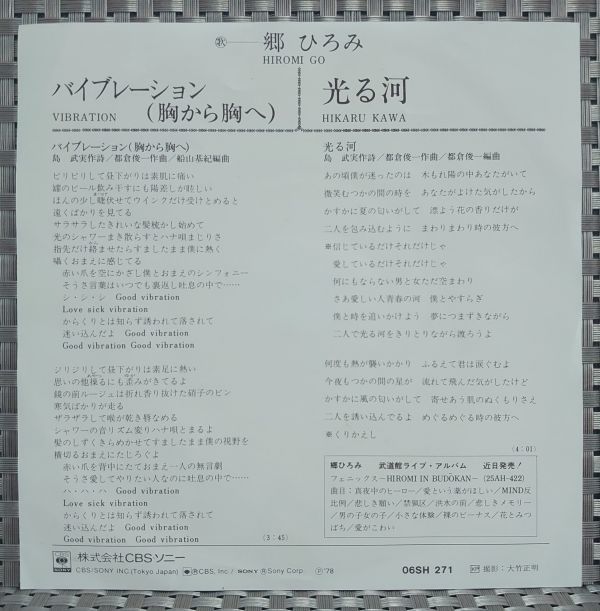 歌―郷 ひろみ
HIROMI GO
バイブレーション
VIBRATION (胸から胸へ)
光る河
HIKARU KAWA
バイブレーション(胸から胸へ)
島 武実作詩/都倉俊一作曲/船山基紀編曲
ピリピリして昼下がりは素肌に痛い
壜のビール飲み干すにも陽差しが眩しい
ほんの少し睫伏せてウインクだけ受けとめると
遠くばかりを見てる
サラサラしたきれいな髪梳かし始めて
光のシャワーまき散らすとハナ唄まじりさ
指先だけ絡ませたらすましたまま僕に熱く
囁くおまえに感じてる
赤い爪を空にかざし僕とおまえのシンフォニー
そうさ言葉はいつでも裏返し吐息の中で……
シ・シ・シ Good vibration
Love sick vibration
からくりとは知らず誘われて落されて
迷い込んだよ Good vibration
Good vibration Good vibration
ジリジリして昼下がりは素足に熱い
思いの他操るにも歪みがきてるよ
鏡の前ルージュは折れ香り抜けた硝子のビン
寒気ばかりが走る
ザラザラして喉が乾き唇なめる
シャワーの音リズム変りハナ唄とまるよ
髪のしずくきらめかせてすましたまま僕の視野を
横切るおまえにたじろぐよ
赤い爪を背中にたておまえ一人の無言劇
そうさ愛してやりたい人なのに吐息の中で……
ハ・ハ・ハ Good vibration
Love sick vibration
からくりとは知らず誘われて落されて
迷い込んだよ Good vibration
Good vibration Good vibration
(3:45)
光る河
島 武実作詩/都倉俊一作曲/都倉俊一編曲
あの頃僕が迷ったのは 木もれ陽の中あなたがいて
微笑むつかの間の時を あなたがよけた気がしたから
かすかに夏の匂いがして 漂よう花の香りだけが
二人を包み込むように まわりまわり時の彼方へ
※信じているだけそれだけじゃ
愛しているだけそれだけじゃ
何にもならない男と女ただ空まわり
さあ愛しい人青春の河 僕とやすらぎ
僕と時を追いかけよう 夢につまずきながら
二人で光る河をきりとりながら渡ろうよ
何度も熱が襲いかかり ふるえて君は涙ぐむよ
今夜もつかの間の星が 流れて飛んだ気がしたけど
かすかに風の匂いがして 寄せあう肌のぬくもりさえ
二人を誘い込んでるよ めぐるめぐる時の彼方へ
※くりかえし
(4:01)
郷ひろみ 武道館ライブ・アルバム 近日発売!
フェニックス―HIROMI IN BUDOKAN―(25AH-422)
曲目:真夜中のヒーロー/愛という薬がほしい/MIND反
比例/悲しき願い/禁猟区/洪水の前/悲しきメモリー
/男の子女の子/小さな体験/裸のビーナス/花とみつ
ばち/愛がこわい
CBS SONY 株式会社CBSソニー
CBS/SONY INC.(Tokyo Japan) ®CBS, Inc./SONY ®Sony Corp. Ⓟ'78
06SH 271
印 撮影:大竹正明